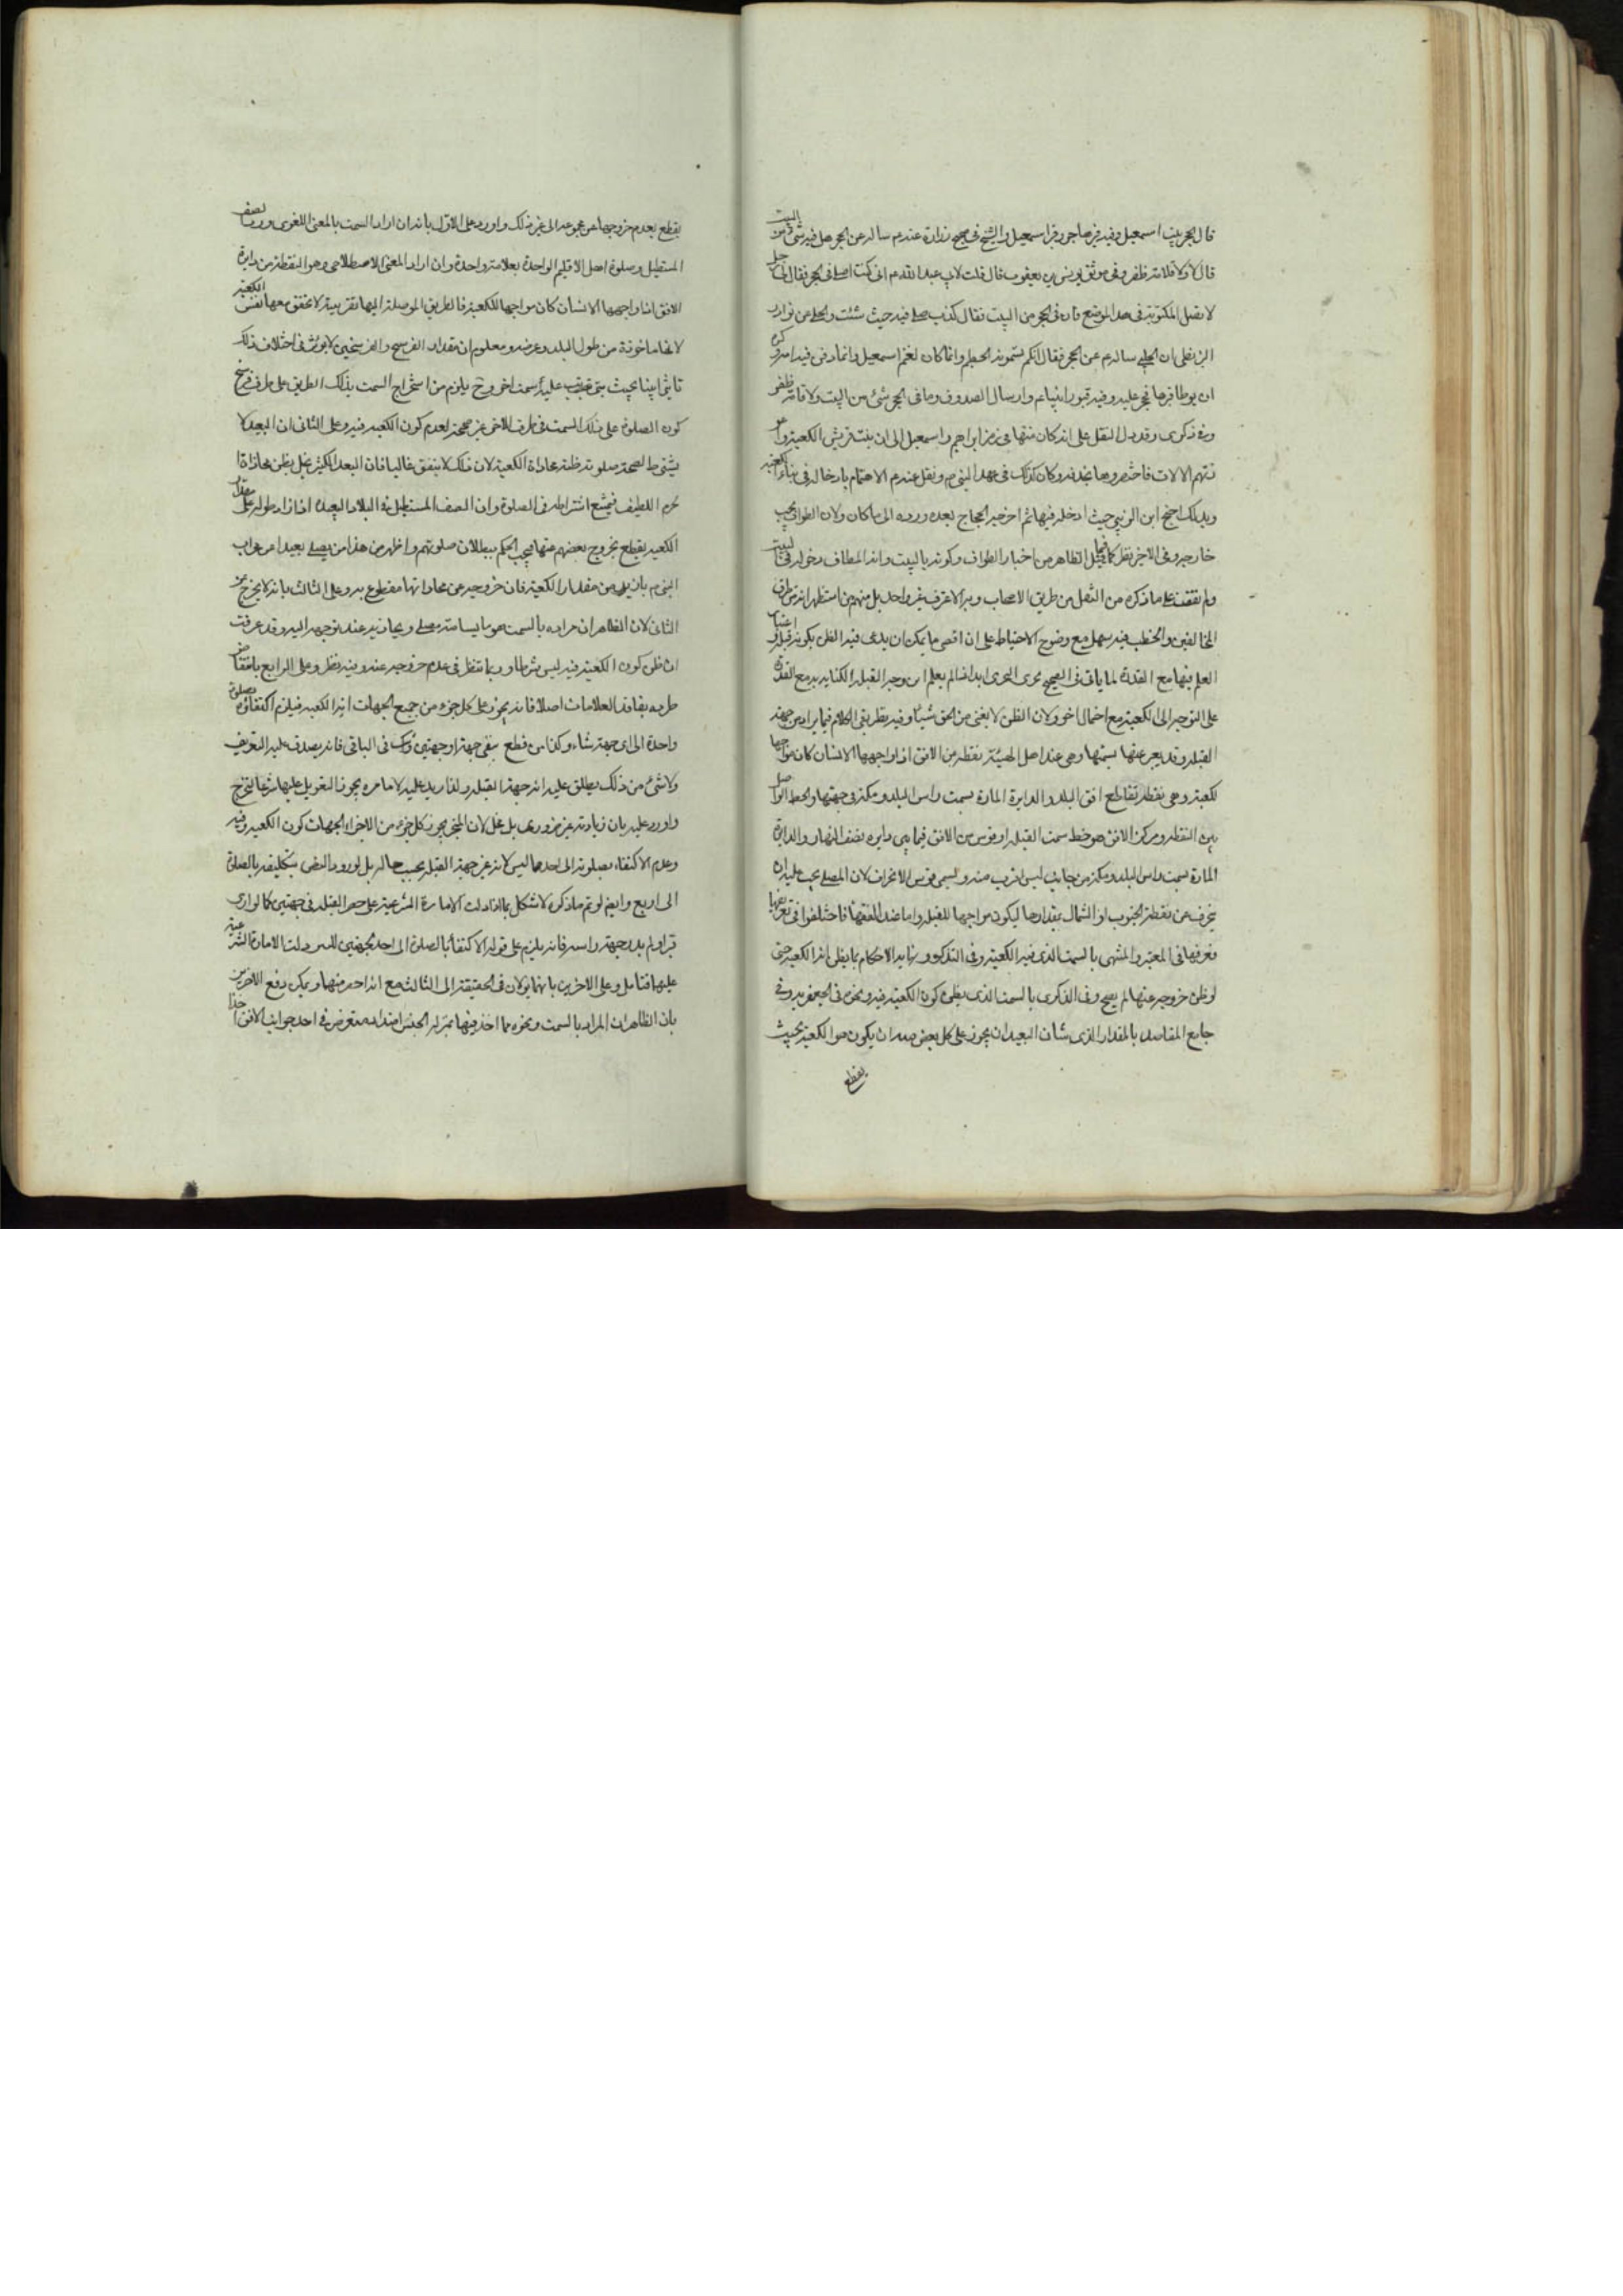 قال الحجر بيت اسمعيل وفيه قبر هاجر وقبر اسمعيل والشيخ في صحيح زرارة عنه م ساله عن الحجر هل فيه شئ من البيت
قال لا ولا قلامة ظفر وفي موثق يونس بن يعقوب قال قلت لابي عبد الله م اني كنت اصلي في الحجر فقال لي رجل
لا تصل المكتوبة في هذا الموضع فان في الحجر من البيت فقال كذب صل فيه حيث شئت والحلي عن نوادر
البزنطي ان الحلبي ساله م عن الحجر فقال انكم تسمونه الحطيم وانما كان لغنم اسمعيل وانما دفن فيه امه وكره
ان يوطا قبرها فحجر عليه وفيه قبور انبياء م وارسال الصدوق وما في الحجر شئ من البيت ولا قلامة ظفر
وفي ذكرى وقد دل النقل على انه كان منها في زمن ابراهيم واسمعيل الى ان بنت قريش الكعبة واعو
زتهم الالات فاختصروها بحذفه وكان كذلك في عهد النبي ص ونقل عنه م الاهتمام بادخاله في بناء الكعبة
وبذلك احتج ابن الزبير حيث ادخله فيها ثم اخرجه الحجاج بعده ورده الى ما كان ولان الطواف يجب
خارجه وفي الاخير نظر كما قيل الظاهر من اخبار الطواف وكونه بالبيت وانه المطاف دخوله في البيت
ولم نقف على ما ذكره من النقل من طريق الاصحاب وبه الاعتراف غير واحد بل منهم من استظهر انه من طرق
المخالفين والخطب فيه سهل مع وضوح الاحتياط على ان اقصى ما يمكن ان يدعى فيه الظن بكونه قبلة واعتبار
العلم فيها مع القدرة لما ياتي في الصحيح يجزي التحري ابدا اذا لم يعلم اين وجه القبلة الكناية به مع القدرة
على التوجه الى الكعبة مع احتمال اخر ولان الظن لا يغني من الحق شيئا وفيه نظر بقي الكلام فيما يراد من جهة
القبلة وقد يعبر عنها بسمتها وهي عند اهل الهيئة نقطة من الافق اذا واجهها الانسان كان مواجها
للكعبة وهي نقطة تقاطع افق البلد والدايرة المارة بسمت راس البلد ومكة في جهتها والخط الواصل
بين النقطة ومركز الافق هو خط سمت القبلة او قوس من الافق فيما بين دايره نصف النهار والدايرة
المارة بسمت راس البلد ومكة من جانب ليس اقرب منه ويسمى قوس الانحراف لان المصلي يجب عليه ان
ينحرف عن نقطة الجنوب او الشمال بمقدارها ليكون مواجها للقبلة واما عند الفقهاء فاختلفوا في تعريفها
فعرفها في المعتبر والمنتهى بالسمت الذي فيه الكعبة وفي التذكره ونهاية الاحكام بما يظن انه الكعبة حتى
لو ظن خروجه عنها لم يصح وفي الذكرى بالسمت الذي يظن كون الكعبة فيه ونحوه في الجعفرية وفي
جامع المقاصد بالمقدار الذي شان البعيد ان يجوز على كل بعض منه ان يكون هو الكعبة بحيث
يقطع
يقطع بعدم خروجها عن مجموعه الى غير ذلك واورد على الاول بانه ان اراد السمت بالمعنى اللغوي ورد الصف
المستطيل وصلوة اهل الاقليم الواحدة بعلامة واحدة وان اراد المعنى الاصطلاحي وهو النقطة من دايرة
الافق اذا واجهها الانسان كان مواجها للكعبة فالطريق الموصلة اليها تقريبية لا تحقق معها نفس الكعبة
لانها ماخوذة من طول البلد وعرضه ومعلوم ان مقدار الفرسخ والفرسخين لا يؤثر في اختلاف ذلك
تاثيرا بينا بحيث يترتب عليه سمت اخر وح يلزم من استخراج السمت بذلك الطريق على طرف فرسخ
كون الصلوة على ذلك السمت في طرف الاخر غير صحيحة لعدم كون الكعبة فيه وعلى الثاني ان البعيد لا
يشترط لصحة صلوته ظنه محاذاة الكعبة لان ذلك لا يتفق غالبا فان البعد الكثير يخل بظن محاذاة ا
لجرم اللطيف فيمتنع اشتراطه في الصلوة وان الصف المستطيل في البلاد البعيدة اذا زاد طوله على مقدار
الكعبة يقطع بخروج بعضهم عنها فيجب الحكم ببطلان صلوتهم واظهر من هذا من يصلي بعيدا من محراب
النبي م بازيد من مقدار الكعبة فان خروجه عن محاذاتها مقطوع به وعلى الثالث بانه لا يخرج عن
الثاني لان الظاهر ان مراده بالسمت هو ما يسامته مصلي ويحاذيه عند توجهه اليه وقد عرفت
ان ظن كون الكعبة فيه ليس شرطا وربما تنظر في عدم خروجه عنه وفيه نظر وعلى الرابع بانتقاض
طرده بفاقد العلامات اصلا فانه يجوز على كل جزء من جميع الجهات انه الكعبة فيلزم اكتفاؤه بصلوة
واحدة الى اي جهة شاء وكذا من قطع بنفي جهة او جهتين وشك في الباقي فانه يصدق عليه التعريف
ولا شئ من ذلك يطلق عليه انه جهة القبلة ولذا زيد عليه لامارة يجوز التعويل عليها شرعا لتخرج
واورد عليه بان زيادته غير ضروري بل مخل لان المتحير يجوز كل جزء من الاجزاء الجهات كون الكعبة فيه
وعدم الاكتفاء بصلوته الى احدها ليس لانه غير جهة القبلة بحسب حاله بل لورود النص بتكليفه بالصلوة
الى اربع وايض لو تم ما ذكره لاشكل بما اذا دلت الامارة الشرعية على حصر القبلة في جهتين كما لو ارى
قبرا ولم يدر جهة راسه فانه يلزم على قوله الاكتفا بالصلوة الى احد الجهتين اللتين دلت الامارة الشرعية
عليها فتامل وعلى الاخرين بانهما يؤلان في الحقيقة الى الثالث مع انه اخص منهما ويمكن دفع الاخيرين
بان الظاهر ان المراد بالسمت ونحوه مما اخذ فيها بمنزلة الجنس امتداد معترض في احد جوانب الافق اخذا